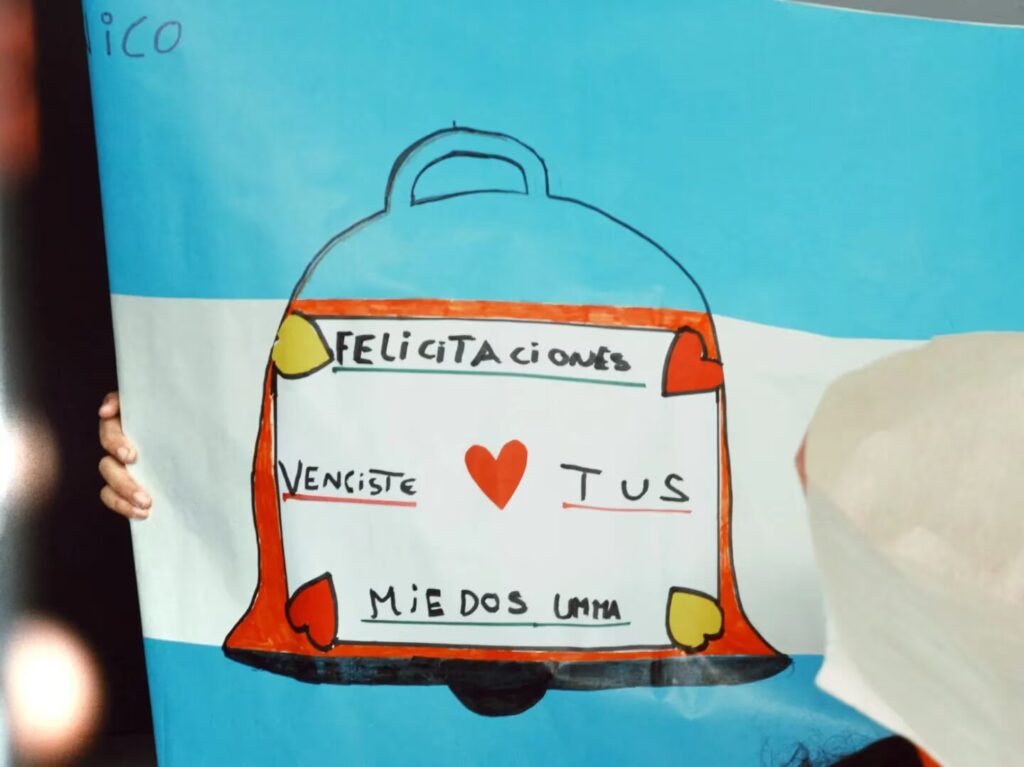 ico
FELiCiTACiONES
VENCiSTE TUS
MiEDOS UMMA